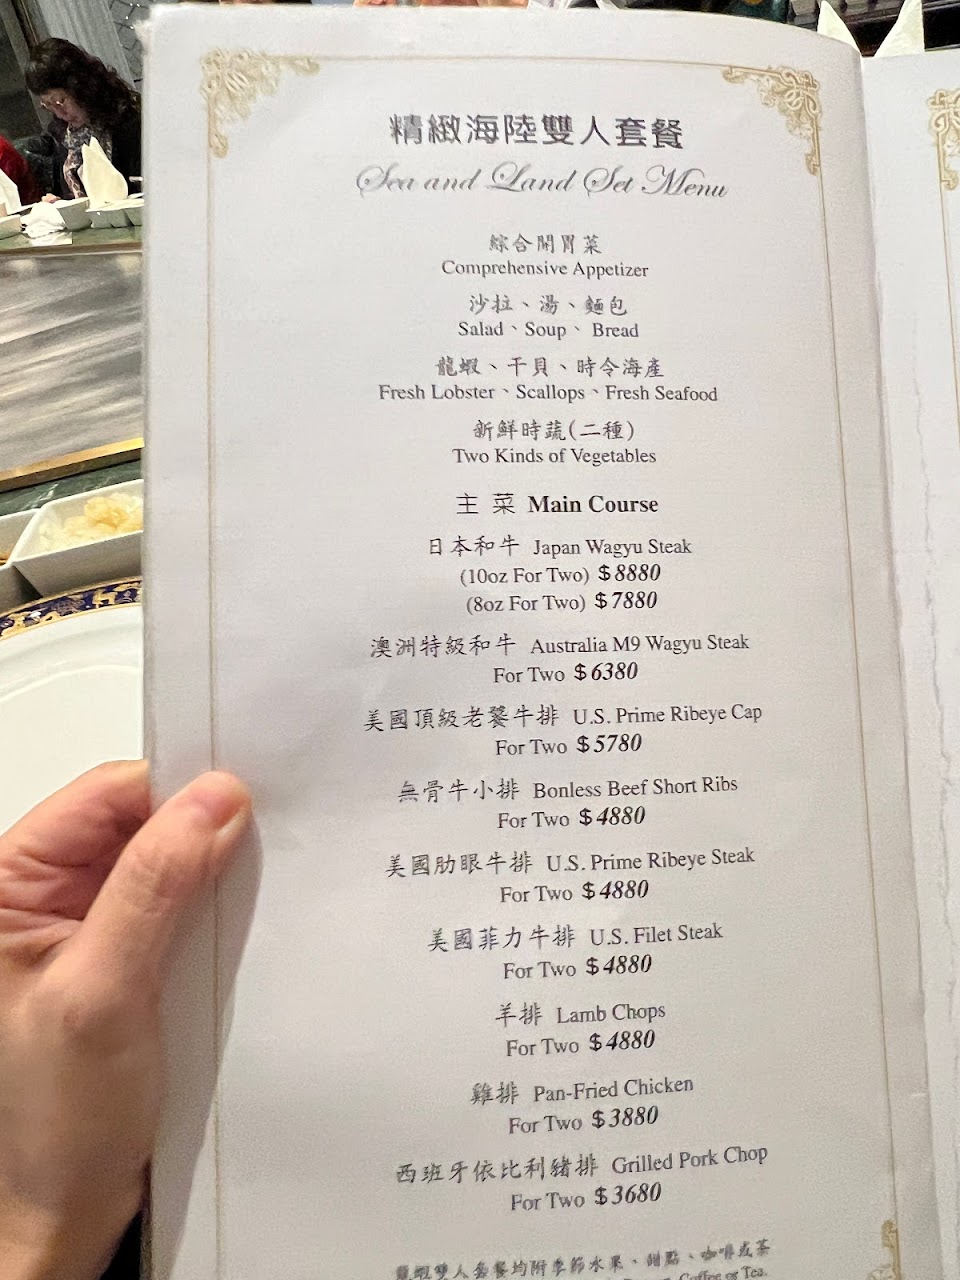 精緻海陸雙人套餐
Sea and Land Set Menu
綜合開胃菜
Comprehensive Appetizer
沙拉、湯、麵包
Salad、Soup、Bread
龍蝦、干貝、時令海產
Fresh Lobster、Scallops、Fresh Seafood
新鮮時蔬(二種)
Two Kinds of Vegetables
主 菜 Main Course
日本和牛 Japan Wagyu Steak
(10oz For Two) $8880
(8oz For Two) $7880
澳洲特級和牛 Australia M9 Wagyu Steak
For Two $6380
美國頂級老饕牛排 U.S. Prime Ribeye Cap
For Two $5780
無骨牛小排 Bonless Beef Short Ribs
For Two $4880
美國肋眼牛排 U.S. Prime Ribeye Steak
For Two $4880
美國菲力牛排 U.S. Filet Steak
For Two $4880
羊排 Lamb Chops
For Two $4880
雞排 Pan-Fried Chicken
For Two $3880
西班牙依比利豬排 Grilled Pork Chop
For Two $3680
龍蝦雙人套餐均附季節水果、甜點、咖啡或茶
Coffee or Tea.